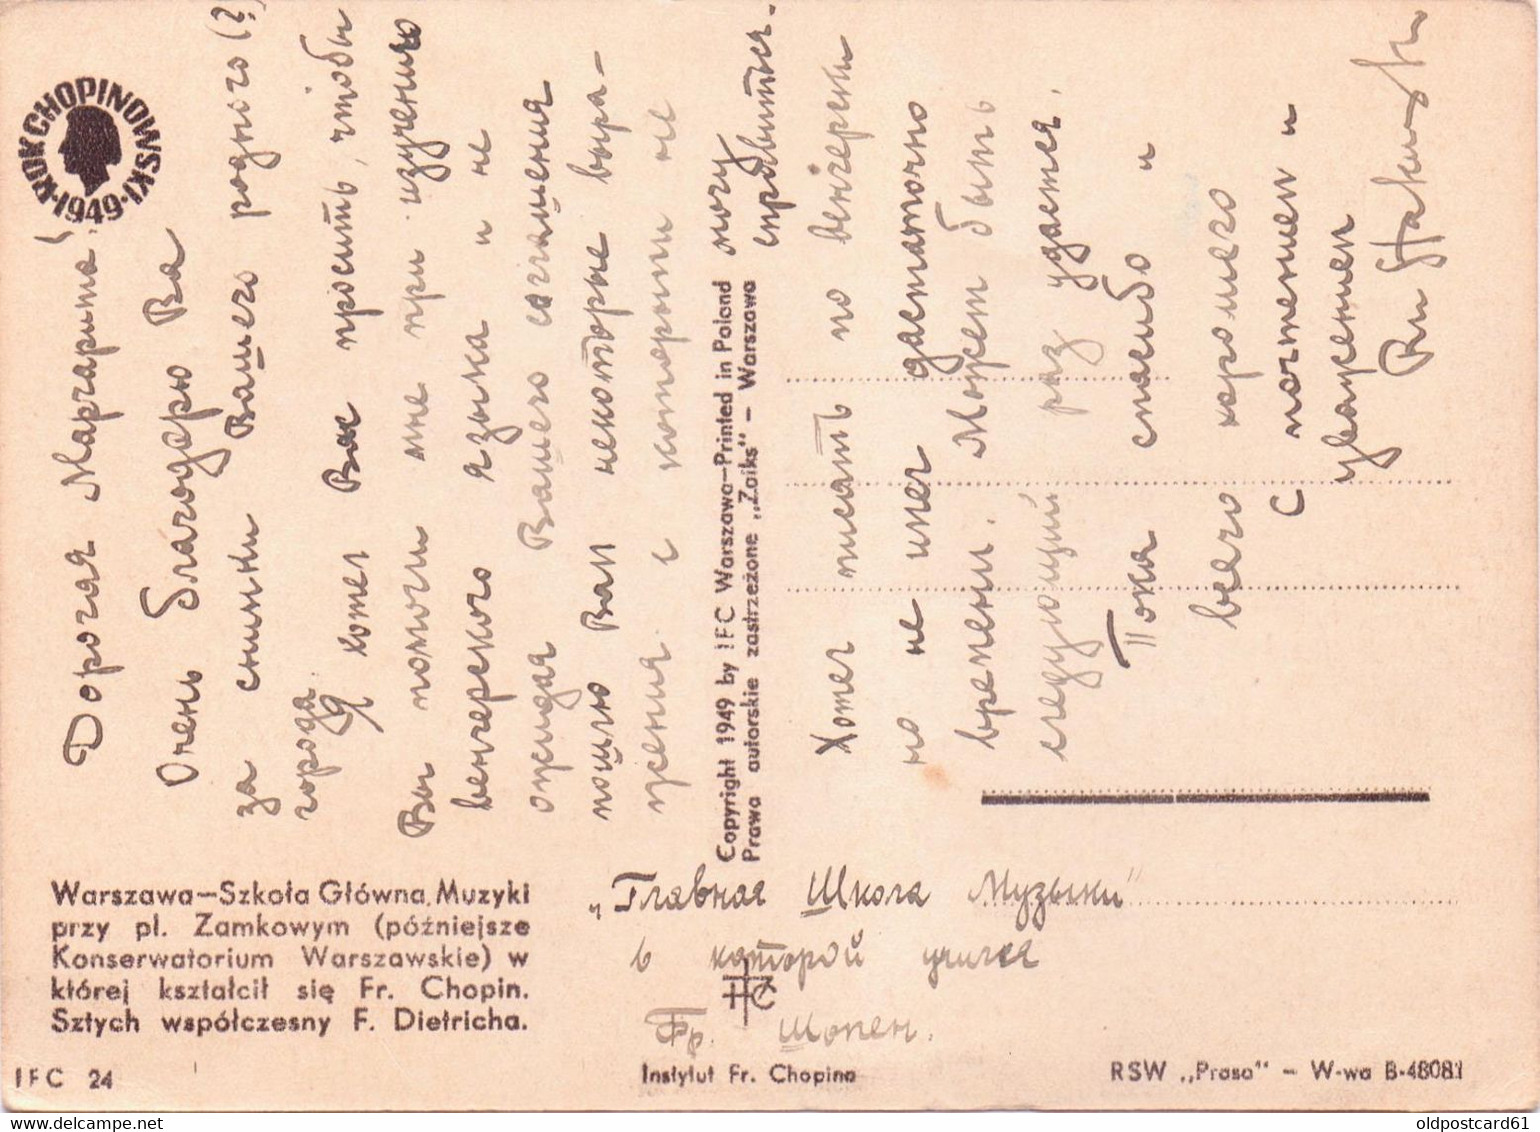 ROK CHOPINOWSKI · 1949 ·
Дорогая Маргарита!
Очень благодарю Ва
за снимки Вашего родного (?)
города.
Я хотел Вас просить, чтобы
Вы помогли мне при изучению
венгерского языка и не
ожидая Вашего соглашения
пошлю Вам некоторые выра-
жения с которыми не
могу
справиться.
Copyright 1949 by IFC Warszawa-Printed in Poland
Prawa autorskie zastrzeżone „Zaiks" — Warszawa
Хотел писать по венгерски
но не имел достаточно
времени. Может быть
следующий раз удастся.
Пока спасибо и
всего хорошего
С почтением и
уважением
Warszawa—Szkoła Główna Muzyki
przy pl. Zamkowym (późniejsze
Konserwatorium Warszawskie) w
której kształcił się Fr. Chopin.
Sztych współczesny F. Dietricha.
„Главная Школа Музыки"
в которой учился
Фр. Шопен.
IFC 24
Instytut Fr. Chopina
RSW „Prasa" – W-wa B-48081
oldpostcard61